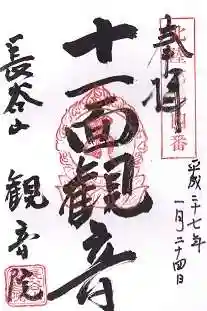 奉拝
平成二十七年
一月二十四日
十一面観音
長谷山
観音院